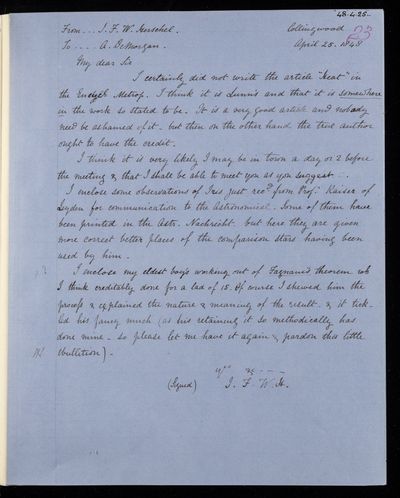 48.4.25.
23
From... J. F. W. Herschel. Collingwood
To.... A. DeMorgan. April 25. 1848
My dear Sir
I certainly did not write the article "heat" in
the Encycl Metrop. I think it is Lunn's and that it is somewhere
in the work so stated to be. It is a very good article and nobody
need be ashamed of it. but then on the other hand the true author
ought to have the credit.
I think it is very likely I may be in town a day or 2 before
the meeting & that I shall be able to meet you as you suggest
I inclose some observations of Iris just recd from Profr Kaiser of
Leyden for communication to the Astronomical. Some of them have
been printed in the Astr. Nachricht. but here they are given
more correct better places of the comparison stars having been
used by him.
I inclose my eldest boy's working out of Fagnani's theorem wh
I think creditably done for a lad of 15. Of course I shewed him the
process & explained the nature & meaning of the result. & it tick-
led his fancy much (as his retaining it so methodically has
done mine. so please let me have it again & pardon this little
ebullition).
yrs &c - - -
(Signed) J. F. W. H.